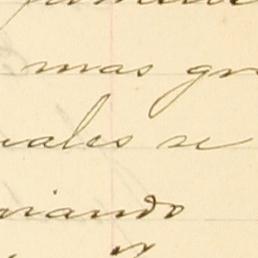 mas gr
uales se
viando